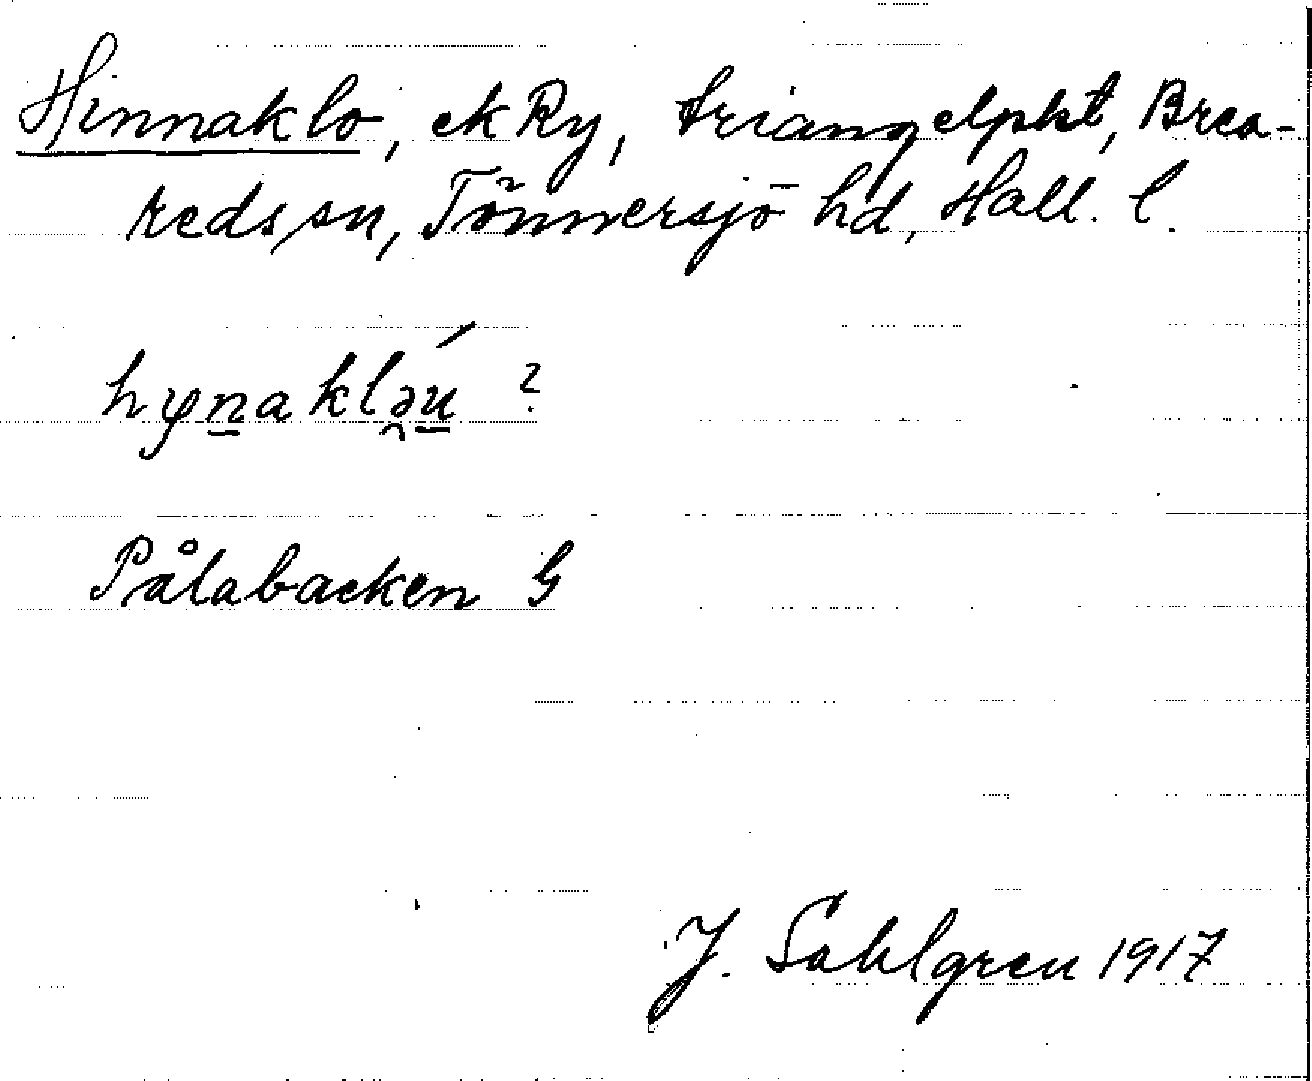 Hinnaklo, ek Ry, triangelpkt, Brea-
reds sn, Tönnersjö hd, Hall. l.
hyn̲akləú̲ ?
Pålabacken G
J. Sahlgren 1917